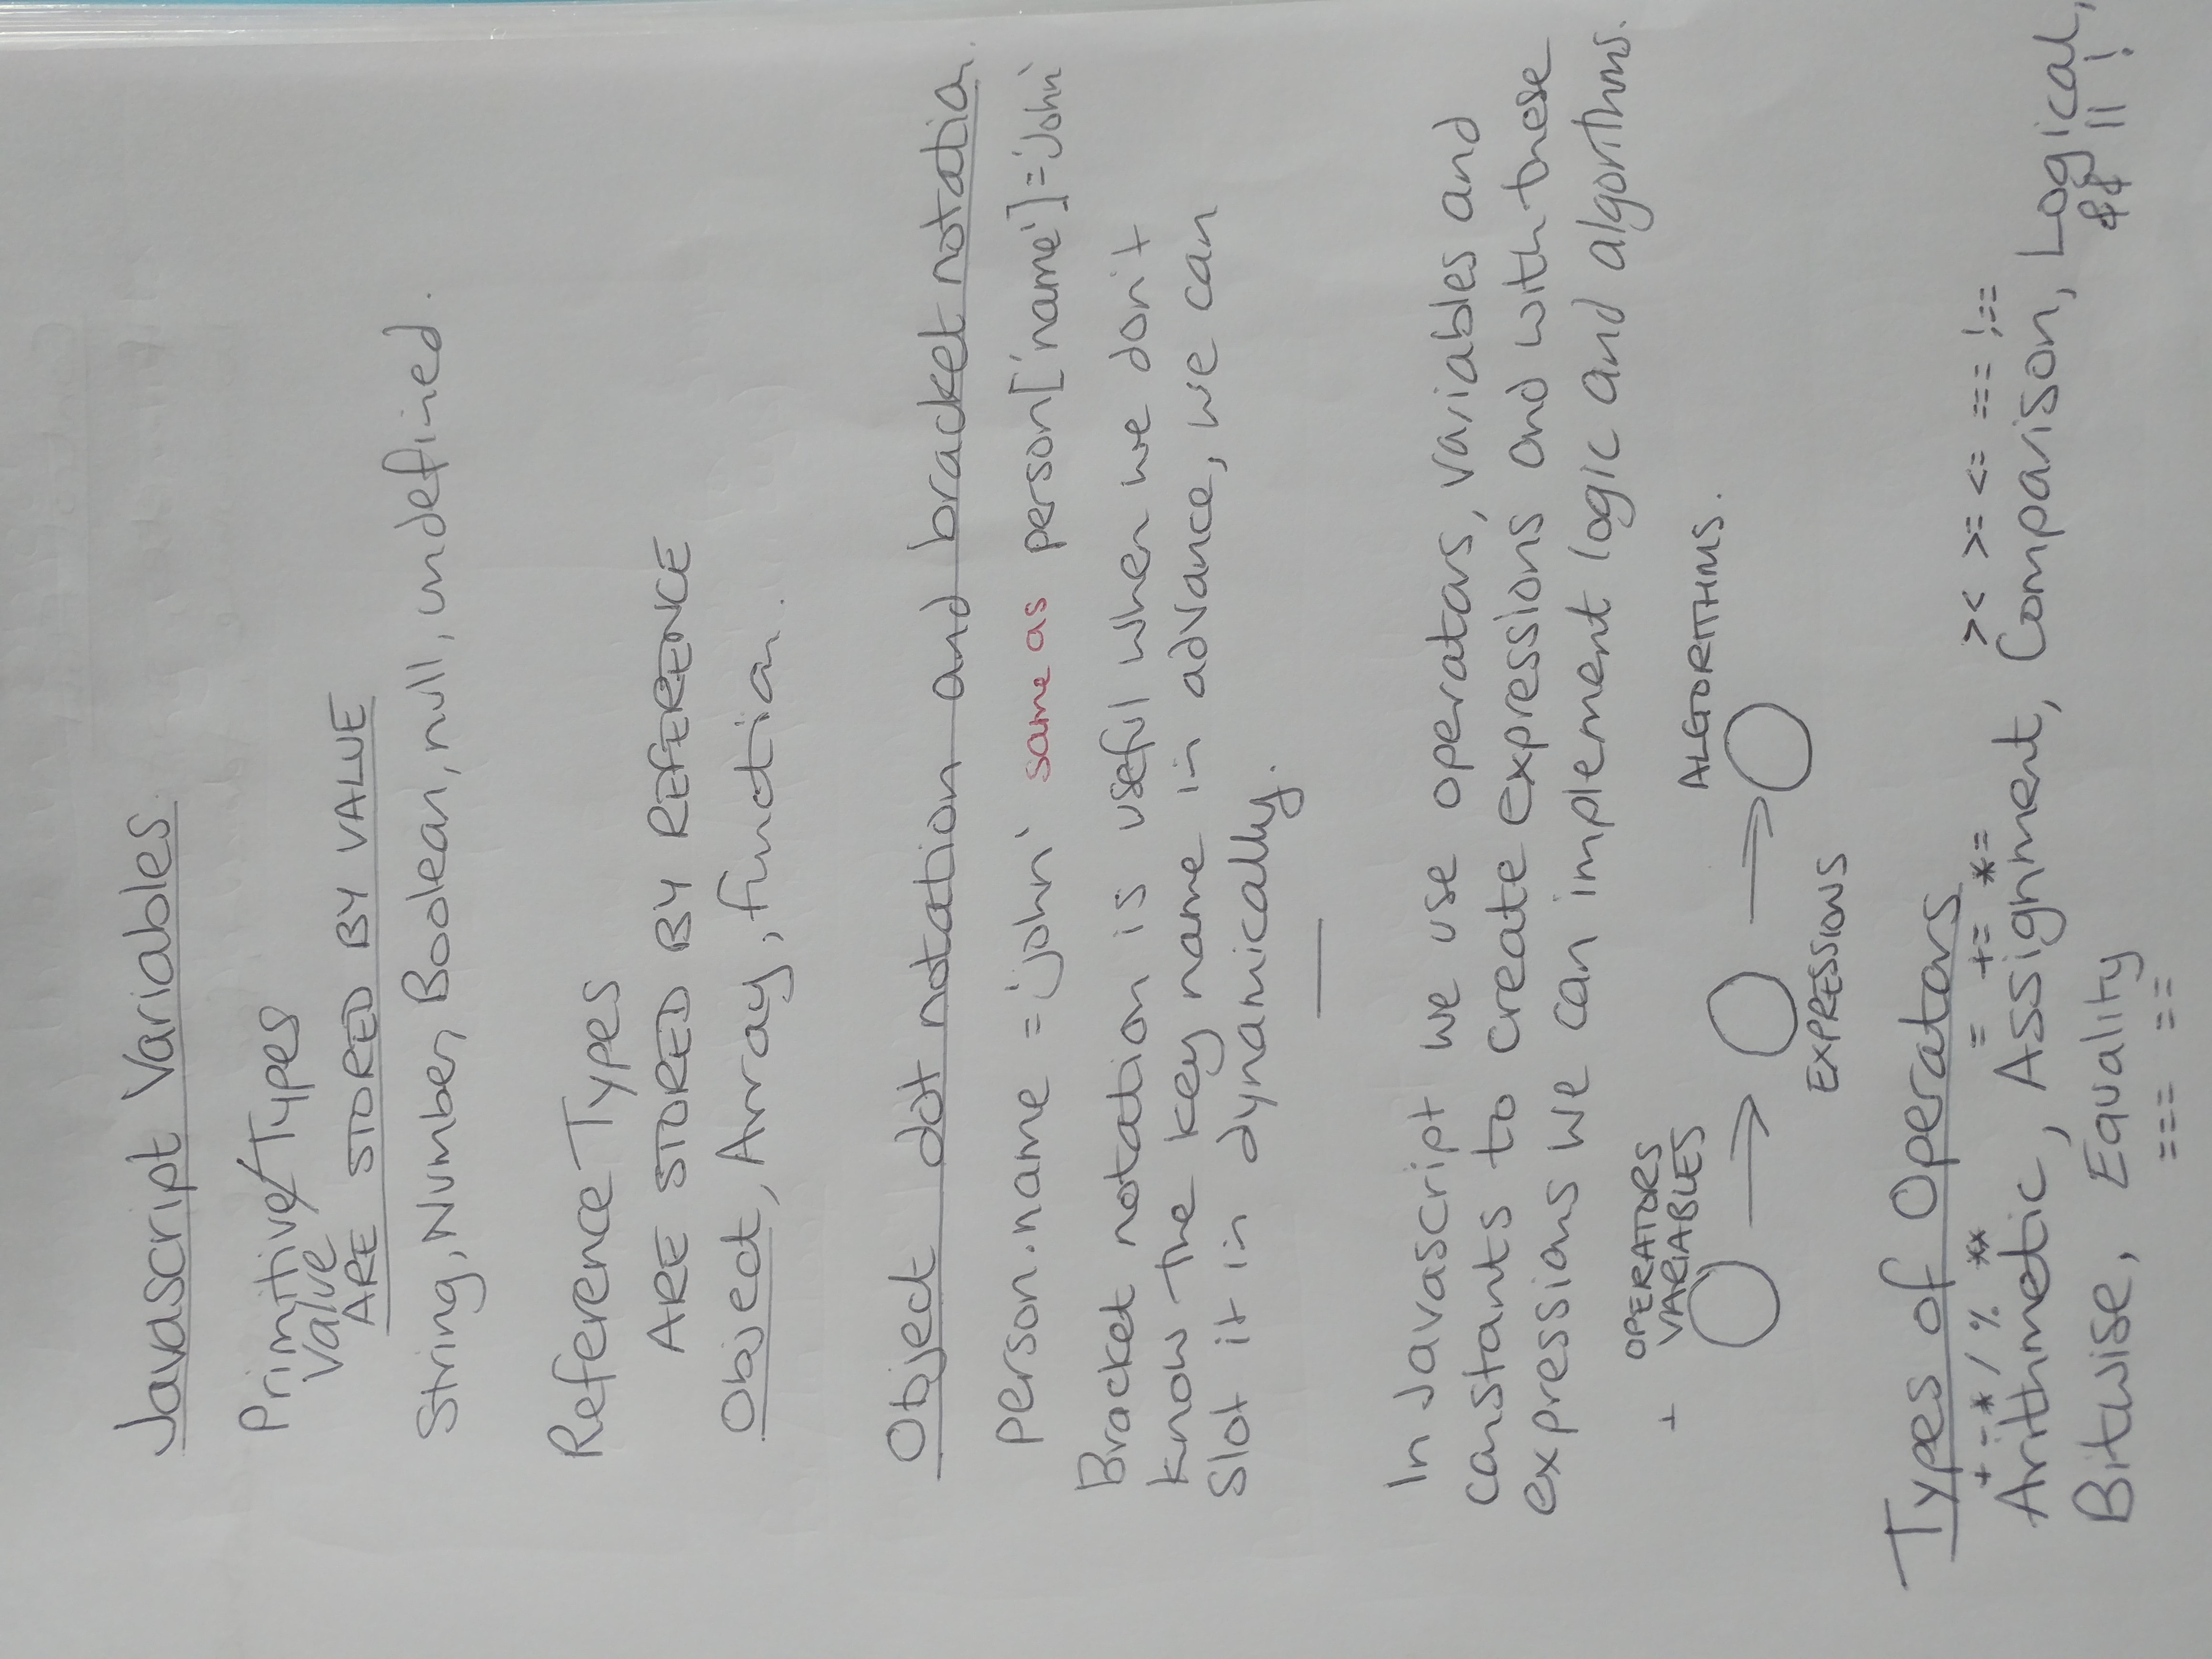 Javascript Variables
Primitive/Types
Value
ARE STORED BY VALUE
String, Number, Boolean, null, undefined.
Reference Types
ARE STORED BY REFERENCE
Object, Array, function.
Object dot notation and bracket notation.
person.name = 'john' same as person['name']='John'
Bracket notation is useful when we don't
know the key name in advance, we can
slot it in dynamically.
In Javascript we use operators, variables and
constants to create expressions and with these
expressions we can implement logic and algorithms.
OPERATORS
+ VARIABLES
ALGORITHMS.
EXPRESSIONS
Types of Operators
+ - * / % ** = += *= > < >= <= === !==
Arithmetic, Assignment, Comparison, Logical,
&& || !
Bitwise, Equality
=== ==